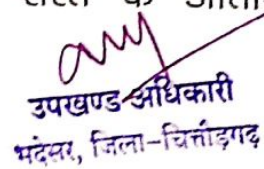 के
उपखण्ड अधिकारी
भदेसर, जिला-चित्तौड़गढ़